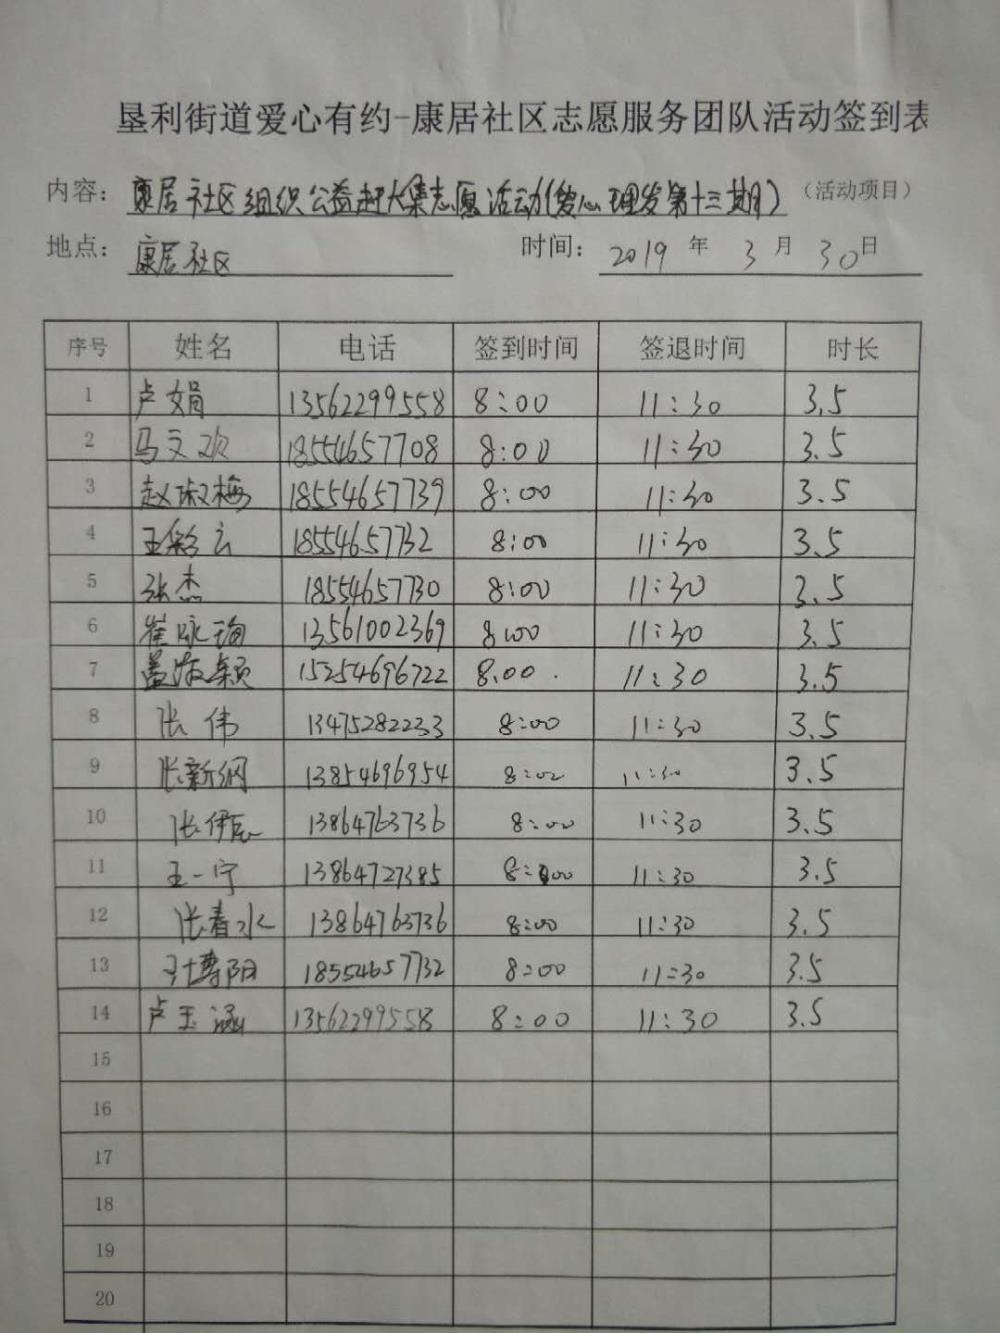 垦利街道爱心有约-康居社区志愿服务团队活动签到表
内容: 康居社区组织公益赶大集志愿活动(爱心理发第十三期) (活动项目)
地点: 康居社区 时间: 2019 年 3 月 30 日
序号 姓名 电话 签到时间 签退时间 时长
1 卢娟 13562299558 8:00 11:30 3.5
2 马文欢 18554657708 8:00 11:30 3.5
3 赵淑梅 18554657739 8:00 11:30 3.5
4 王彩云 18554657732 8:00 11:30 3.5
5 张杰 18554657730 8:00 11:30 3.5
6 崔咏梅 13561002369 8:00 11:30 3.5
7 盖淑颖 15254696722 8.00. 11:30 3.5
8 张伟 13475282233 8:00 11:30 3.5
9 张新纲 13854696954 8:00 11:30 3.5
10 张伊辰 13864763736 8:00 11:30 3.5
11 王一宁 13864727385 8:00 11:30 3.5
12 张春水 13864763736 8:00 11:30 3.5
13 博阳 18554657732 8:00 11:30 3.5
14 卢玉涵 13562299558 8:00 11:30 3.5
15
16
17
18
19
20